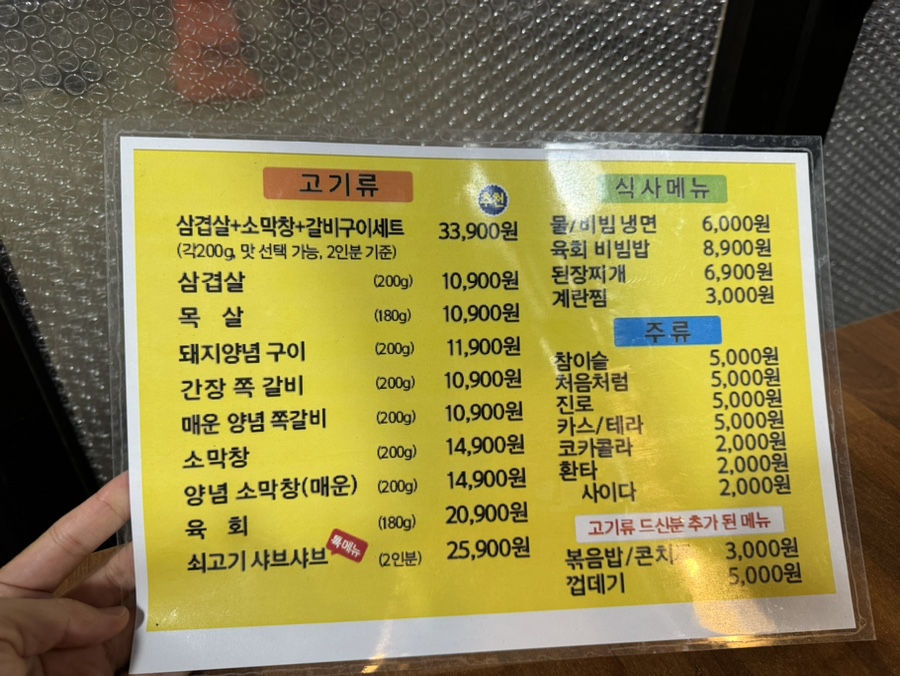 고기류
추천
삼겹살+소막창+갈비구이세트 33,900원
(각200g, 맛 선택 가능, 2인분 기준)
삼겹살 (200g) 10,900원
목 살 (180g) 10,900원
돼지양념 구이 (200g) 11,900원
간장 쪽 갈비 (200g) 10,900원
매운 양념 쪽갈비 (200g) 10,900원
소막창 (200g) 14,900원
양념 소막창(매운) (200g) 14,900원
육 회 (180g) 20,900원
특메뉴
쇠고기 샤브샤브 (2인분) 25,900원
식사메뉴
물/비빔 냉면 6,000원
육회 비빔밥 8,900원
된장찌개 6,900원
계란찜 3,000원
주류
참이슬 5,000원
처음처럼 5,000원
진로 5,000원
카스/테라 5,000원
코카콜라 2,000원
환타 2,000원
사이다 2,000원
고기류 드신분 추가 된 메뉴
볶음밥/콘치즈 3,000원
껍데기 5,000원